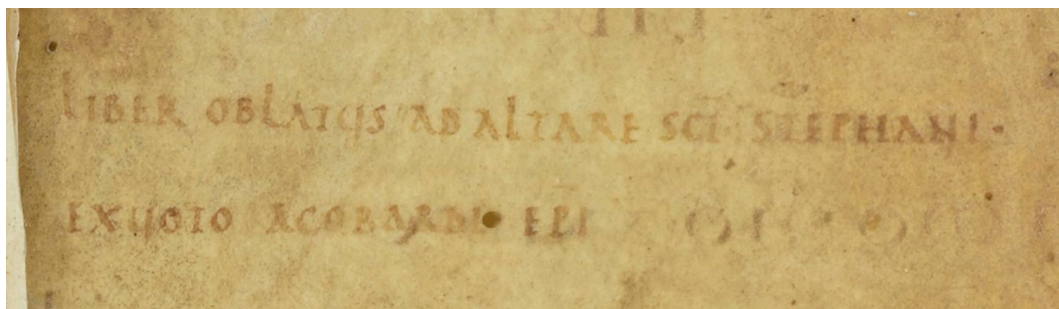 LIBER OBLATUS AD ALTARE SCI STEPHANI·
EX UOTO AGOBARDI EPI